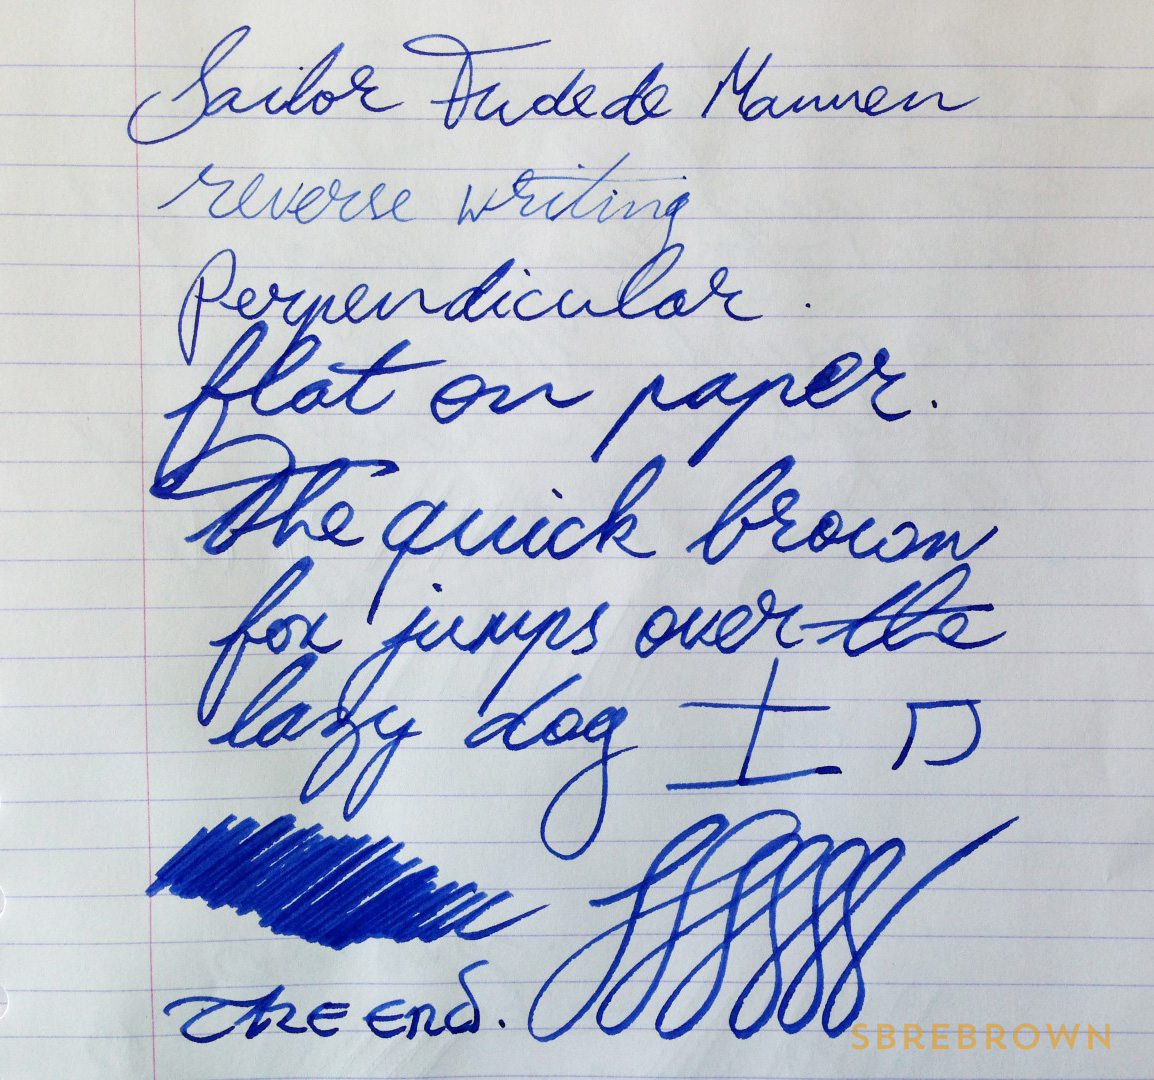 Sailor Fudede Mannen
reverse writing
Perpendicular.
flat on paper.
The quick brown
fox jumps over the
lazy dog
the end.
SBREBROWN